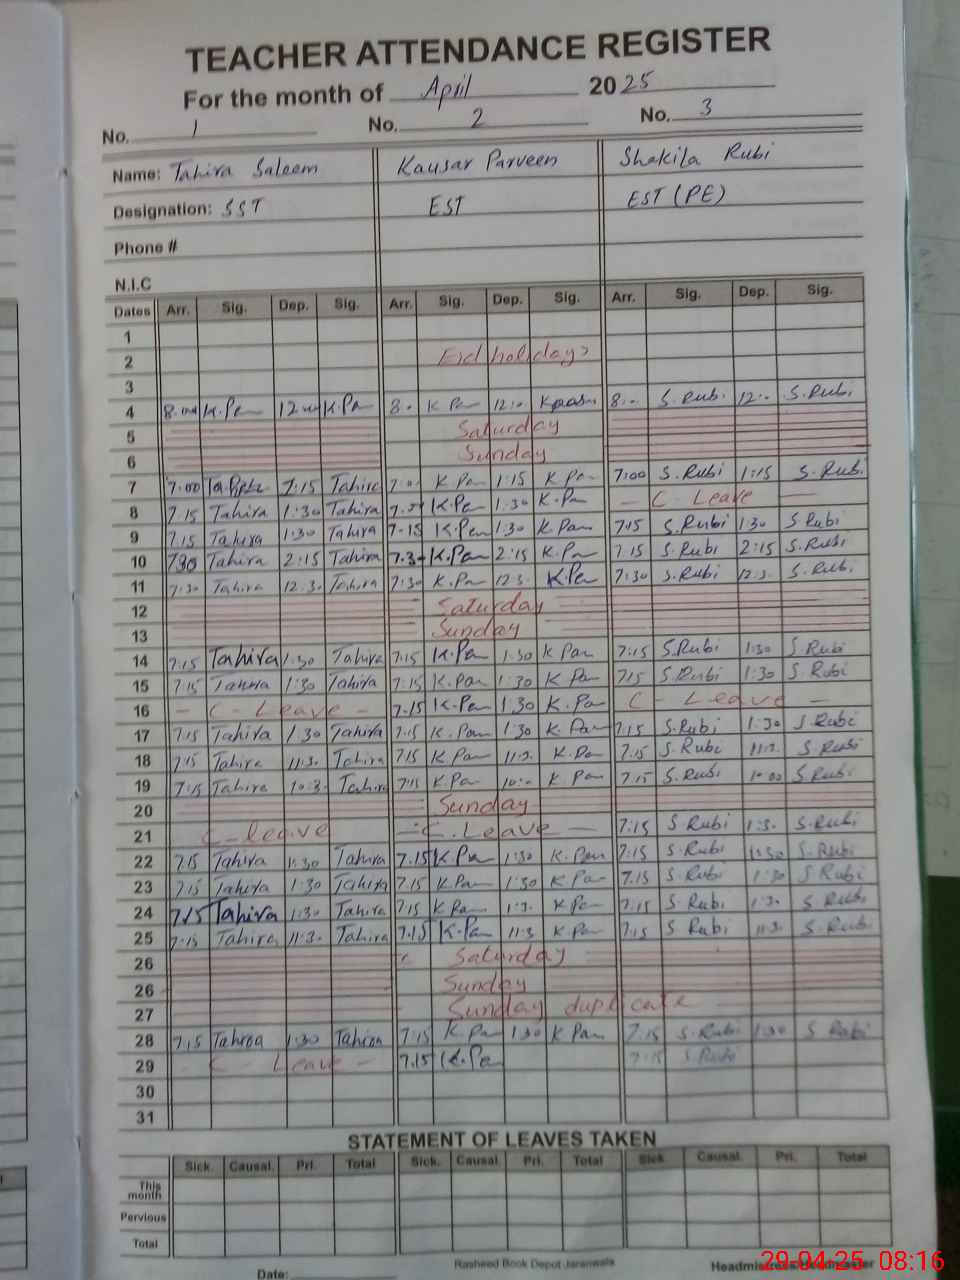 TEACHER ATTENDANCE REGISTER
For the month of April 2025
No. 1 No. 2 No. 3
Name: Tahira Saleem Kausar Parveen Shakila Rubi
Designation: SST EST EST (PE)
Phone #
N.I.C
Dates Arr. Sig. Dep. Sig. Arr. Sig. Dep. Sig. Arr. Sig. Dep. Sig.
1
2 Eid holidays
3
4 8.00 K.Pa 12.00 K.Pa 8.- K Pa 12:- 8:- S.Rubi 12:- S.Rubi
5 Saturday
6 Sunday
7 7:00 7:15 Tahira 7:0 K Pa 1:15 K Pa 7:00 S.Rubi 1:15 S.Rubi
8 7.15 Tahira 1:30 Tahira K.Pa 1.30 K.Pa - C - Leave -
9 7.15 Tahira 1:30 Tahira 7-15 K.Pan 1:30 K Pan 7:15 S.Rubi 1:30 S Rubi
10 7:30 Tahira 2:15 Tahira 7.30 K.Pan 2:15 K.Pa 7:15 S.Rubi 2:15 S.Rubi
11 7:30 Tahira 12.3. Tahira 7:30 K.Pa 12:3. K.Pa 7:30 S.Rubi 12:3. S.Rubi
12 Saturday
13 Sunday
14 7:15 Tahira 1:30 Tahira 7:15 K.Pa 1:30 K Pan 7:15 S.Rubi 1:30 S.Rubi
15 7:15 Tahira 1:30 Tahira 7:15 K.Pan 1:30 K Pan 7:15 S.Rubi 1:30 S.Rubi
16 - C - Leave - 7-15 K.Pan 1.30 K.Pa C - Leave -
17 7:15 Tahira 1:30 Tahira 7:15 K.Pan 1:30 K.Pan 7:15 S.Rubi 1:30 S.Rubi
18 7:15 Tahira 11:3. Tahira 7:15 K Pan 11:3. K.Pa 7:15 S.Rubi 11:3. S.Rubi
19 7:15 Tahira 10:3. Tahira 7:15 K.Pan 10:- K Pan 7:15 S.Rubi 10:00 S.Rubi
20 Sunday
21 C-leave - C. Leave - 7:15 S.Rubi 1:3. S.Rubi
22 7:15 Tahira 1:30 Tahira 7.15 K.Pa 1:30 K.Pan 7:15 S.Rubi 1:30 S.Rubi
23 7:15 Tahira 1:30 Tahira 7.15 K Pan 1:30 K Pa 7.15 S.Rubi 1:30 S.Rubi
24 7:15 Tahira 1:30 Tahira 7:15 K Pan 1:3. K Pan 7:15 S Rubi 1:3. S.Rubi
25 7:15 Tahira 11:3. Tahira 7.15 K.Pan 11:3 K.Pan 7:15 S Rubi 11:3. S.Rubi
26 Saturday
26 Sunday
27 Sunday duplicate
28 7:15 Tahira 1:30 Tahira 7:15 K Pan 1:30 K Pan 7:15 S.Rubi 1:30 S Rubi
29 - C - Leave - 7.15 K.Pa 7:15 S.Rubi
30
31
STATEMENT OF LEAVES TAKEN
Sick. Causal. Pri. Total Sick. Causal. Pri. Total Sick. Causal. Pri. Total
This month
Pervious
Total
Date: Rasheed Book Depot Jaranwala Headmistress/Headmaster
29-04-25 08:16